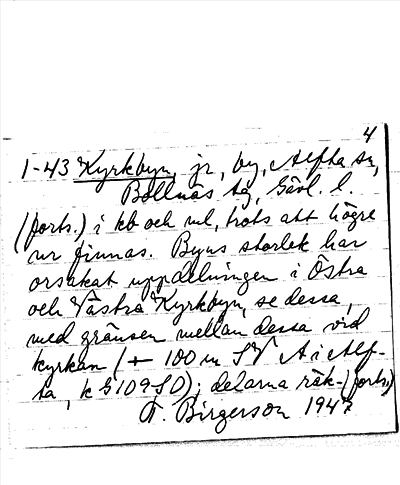 4
1-43 Kyrkbyn, jr, by, Alfta sn,
Bollnäs tg, Gävl. l.
(forts.) i kb och ml, trots att högre
nr finnas. Byns storlek har
orsakat uppdelningen i Östra
och Västra Kyrkbyn, se dessa,
med gränsen mellan dessa vid
kyrkan (+ 100 m SV A i Alf-
ta, k G109SD); delarna räk- (forts.)
F. Birgerson 1947